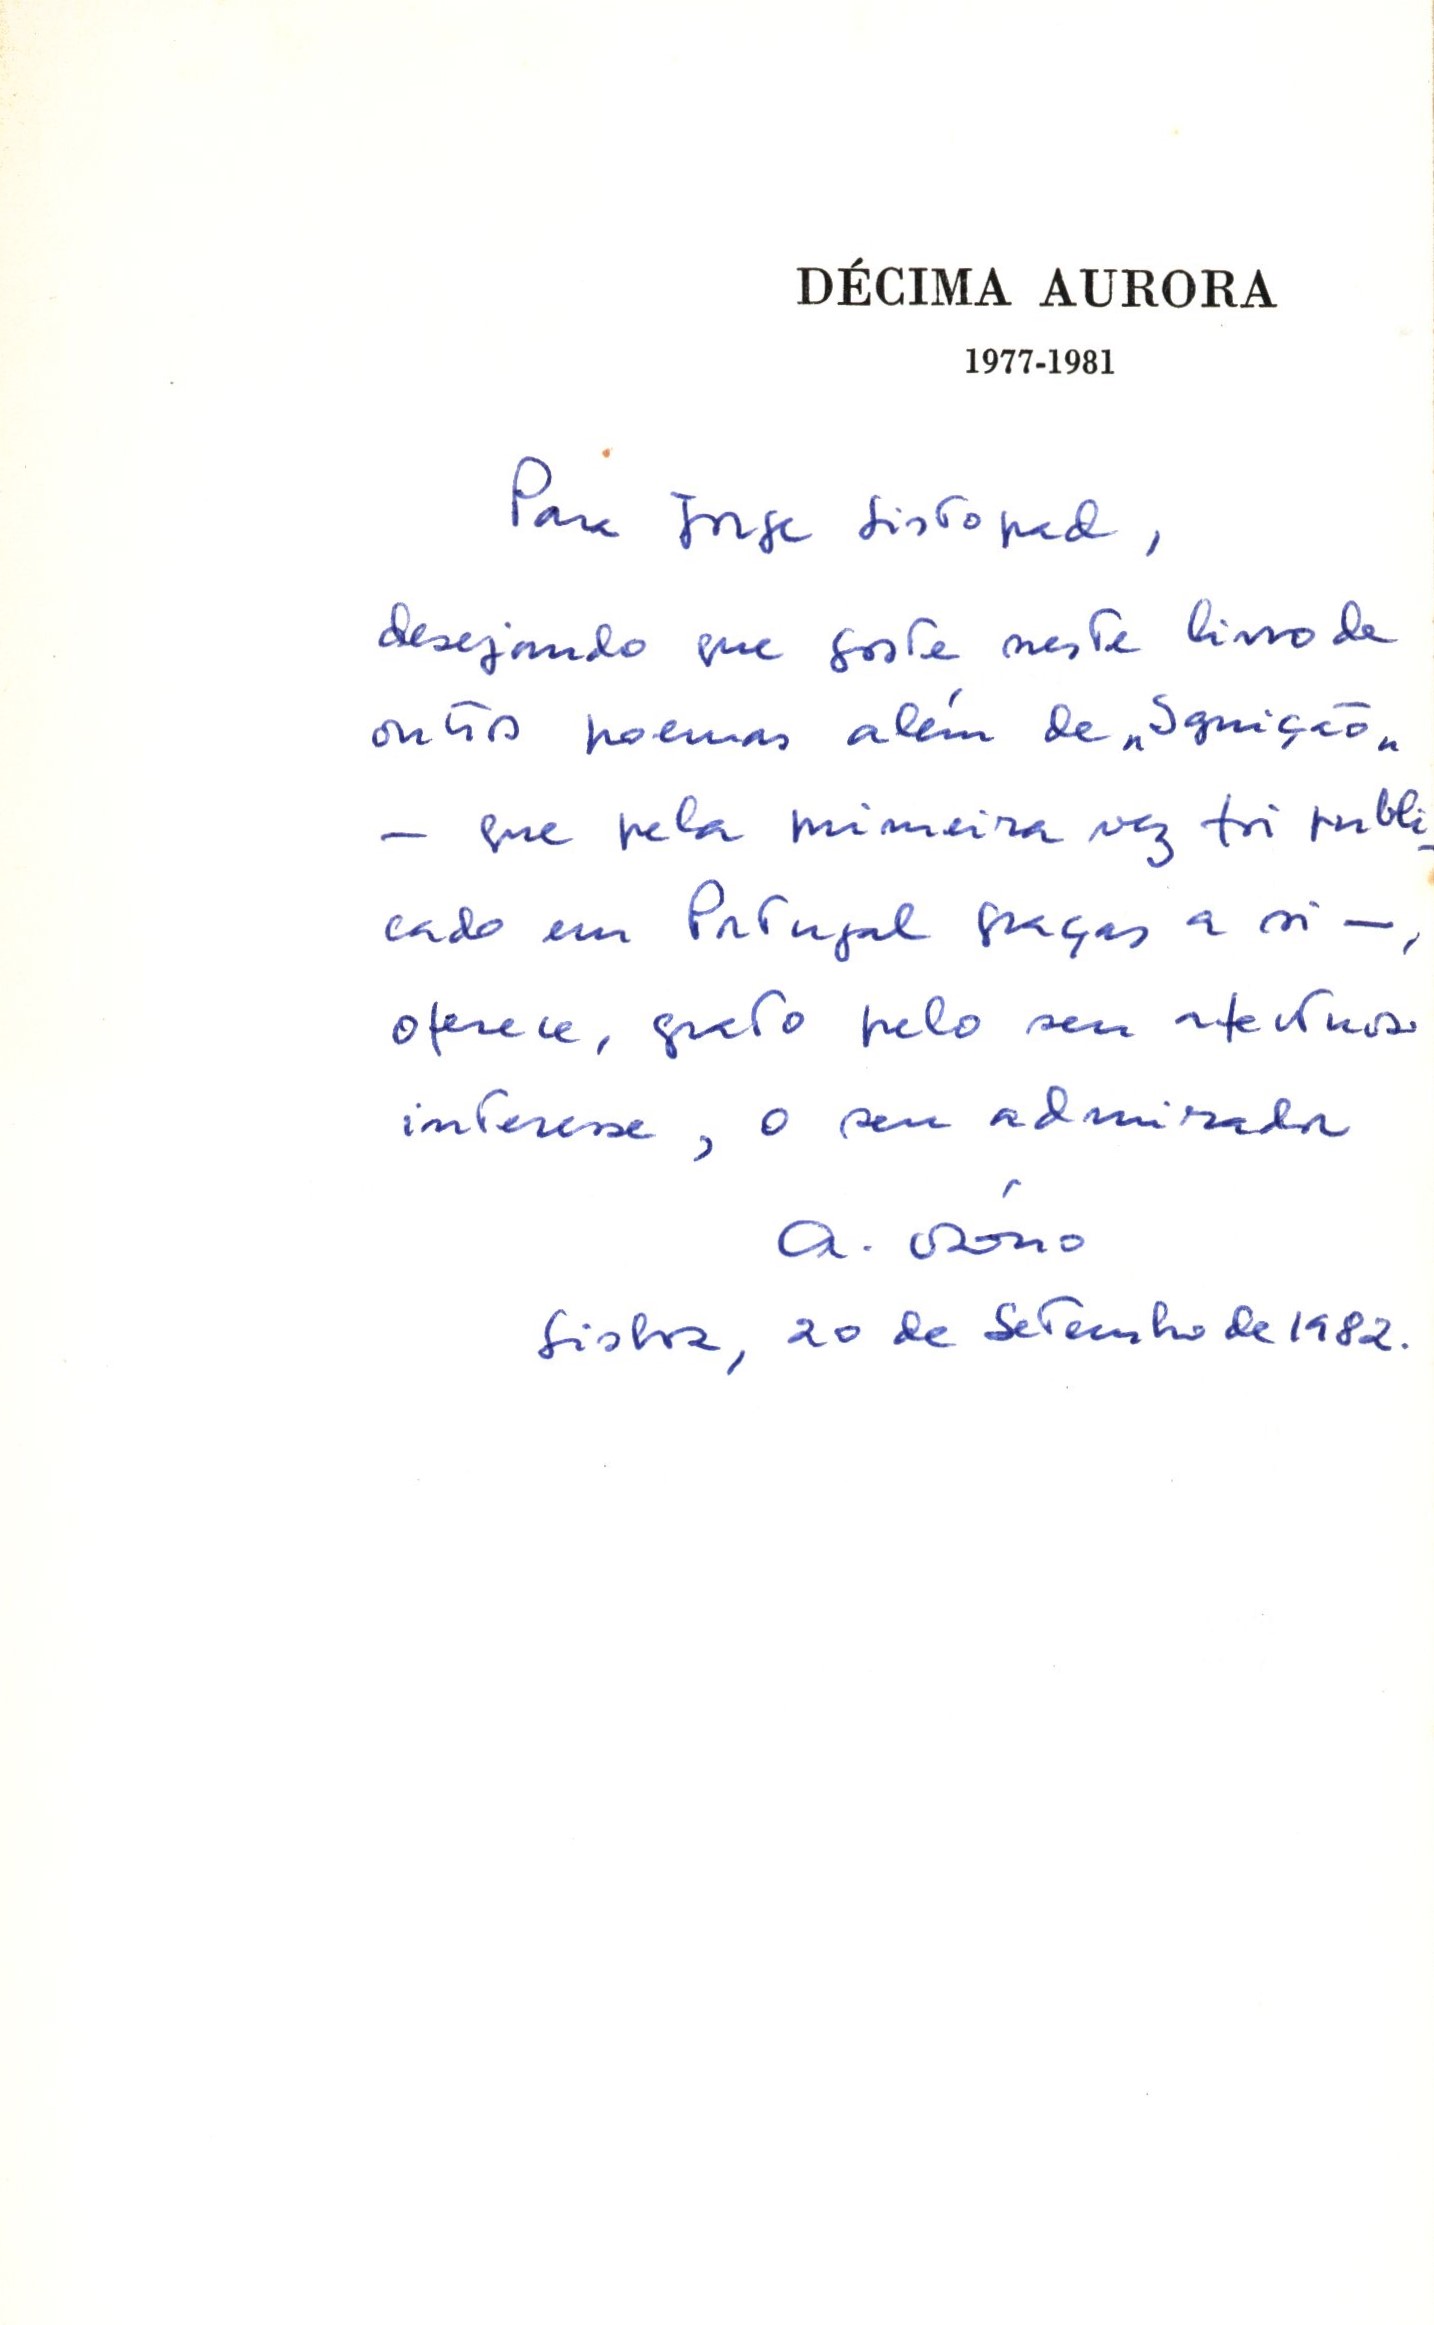 DÉCIMA AURORA
1977-1981
Para Jorge Listopad,
desejando que goste neste livro de
outros poemas além de „Ignição„
— que pela primeira vez foi publi-
cado em Portugal graças a si —,
oferece, grato pelo seu afectuoso
interesse, o seu admirador
A. Osório
Lisboa, 20 de Setembro de 1982.